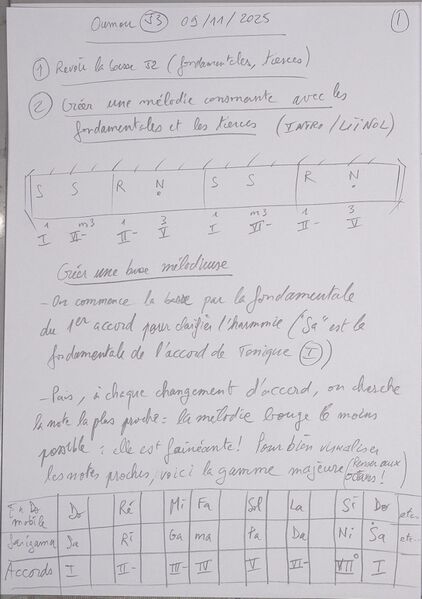 Oumou J3 09/11/2025 1
1 Revoir la basse J2 (fondamentales, tierces)
2 Créer une mélodie consonante avec les
fondamentales et les tierces (INTRO/
S S R N S S R N
1 m3 1 3 1 m3 1 3
I VI- II- V I VI- II- V
Créer une base mélodieuse
- On commence la basse par la fondamentale
du 1er accord pour clarifier l'harmonie ("Sa" est la
fondamentale de l'accord de Tonique I)
- Puis, à chaque changement d'accord, on cherche
la note la plus proche = la mélodie bouge le moins
possible : elle est fainéante! Pour bien visualiser
les notes proches, voici la gamme majeure (Penser aux octaves!
En Do mobile Do Ré Mi Fa Sol La Si Do etc...
Sarigama Sa Ri Ga ma Pa Da Ni Sa etc..
Accords I II- III- IV V VI- VII° I